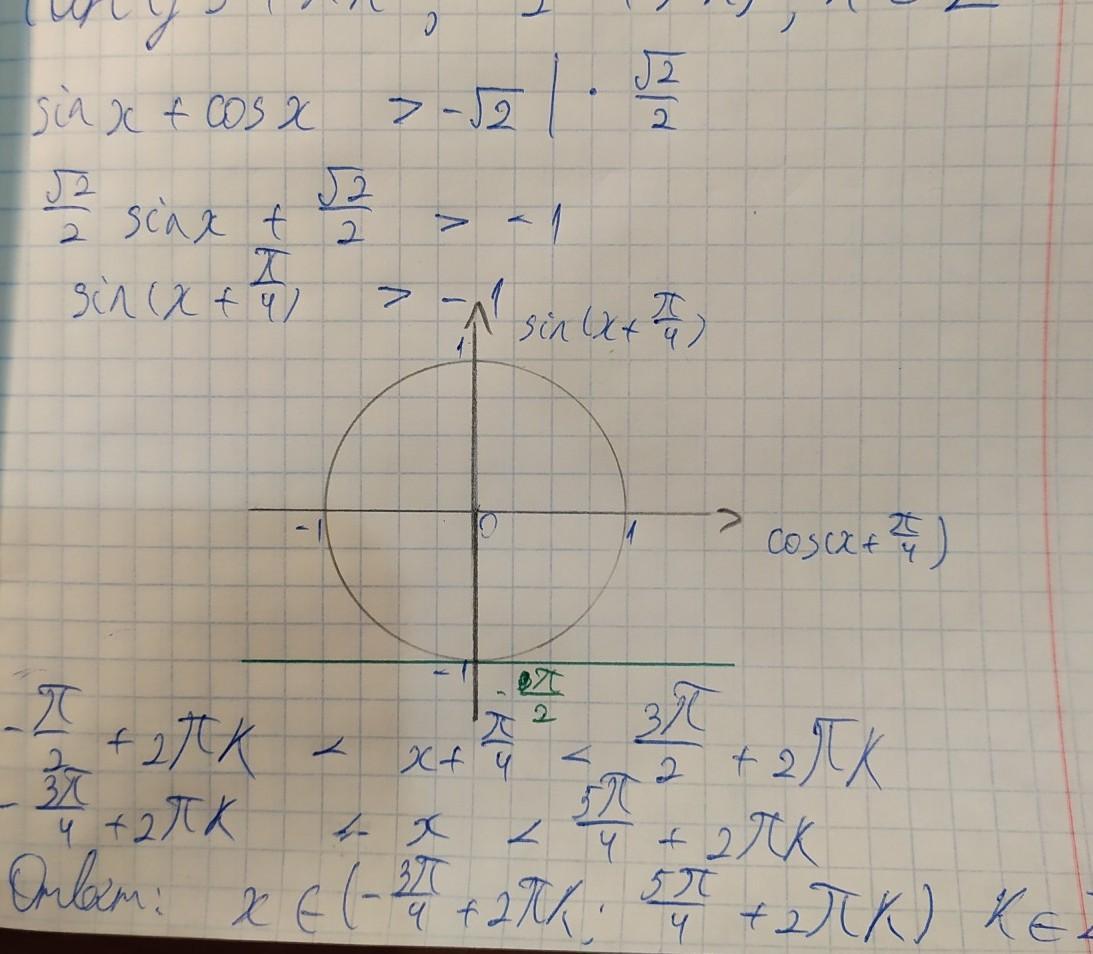 sin x + cos x > -√2 | · √2/2
√2/2 sin x + √2/2 > -1
sin(x + π/4) > -1
sin(x + π/4)
1
-1 0 1
cos(x + π/4)
-1
-π/2
-π/2 + 2πK < x + π/4 < 3π/2 + 2πK
-3π/4 + 2πK < x < 5π/4 + 2πK
Ответ: x ∈ (-3π/4 + 2πK; 5π/4 + 2πK) K ∈ Z